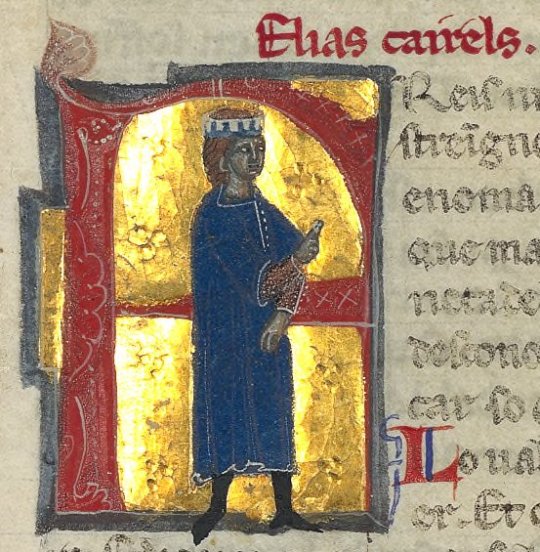 Elias cairels.
A
Reis m
strẽgne
enoma
que ma
netade
descono
car so
Lo ual
er. Et